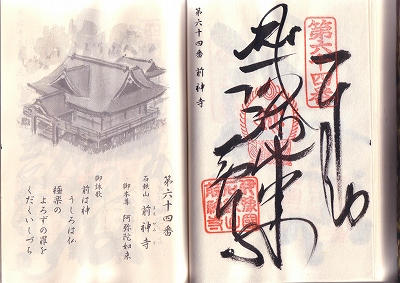 第六十四番 前神寺
第六十四番
阿弥陀如来
前神寺
第六十四番
石鈇山 前神寺
御本尊 阿弥陀如来
御詠歌
前は神
うしろは仏
極楽の
よろずの罪を
くだくいしづち